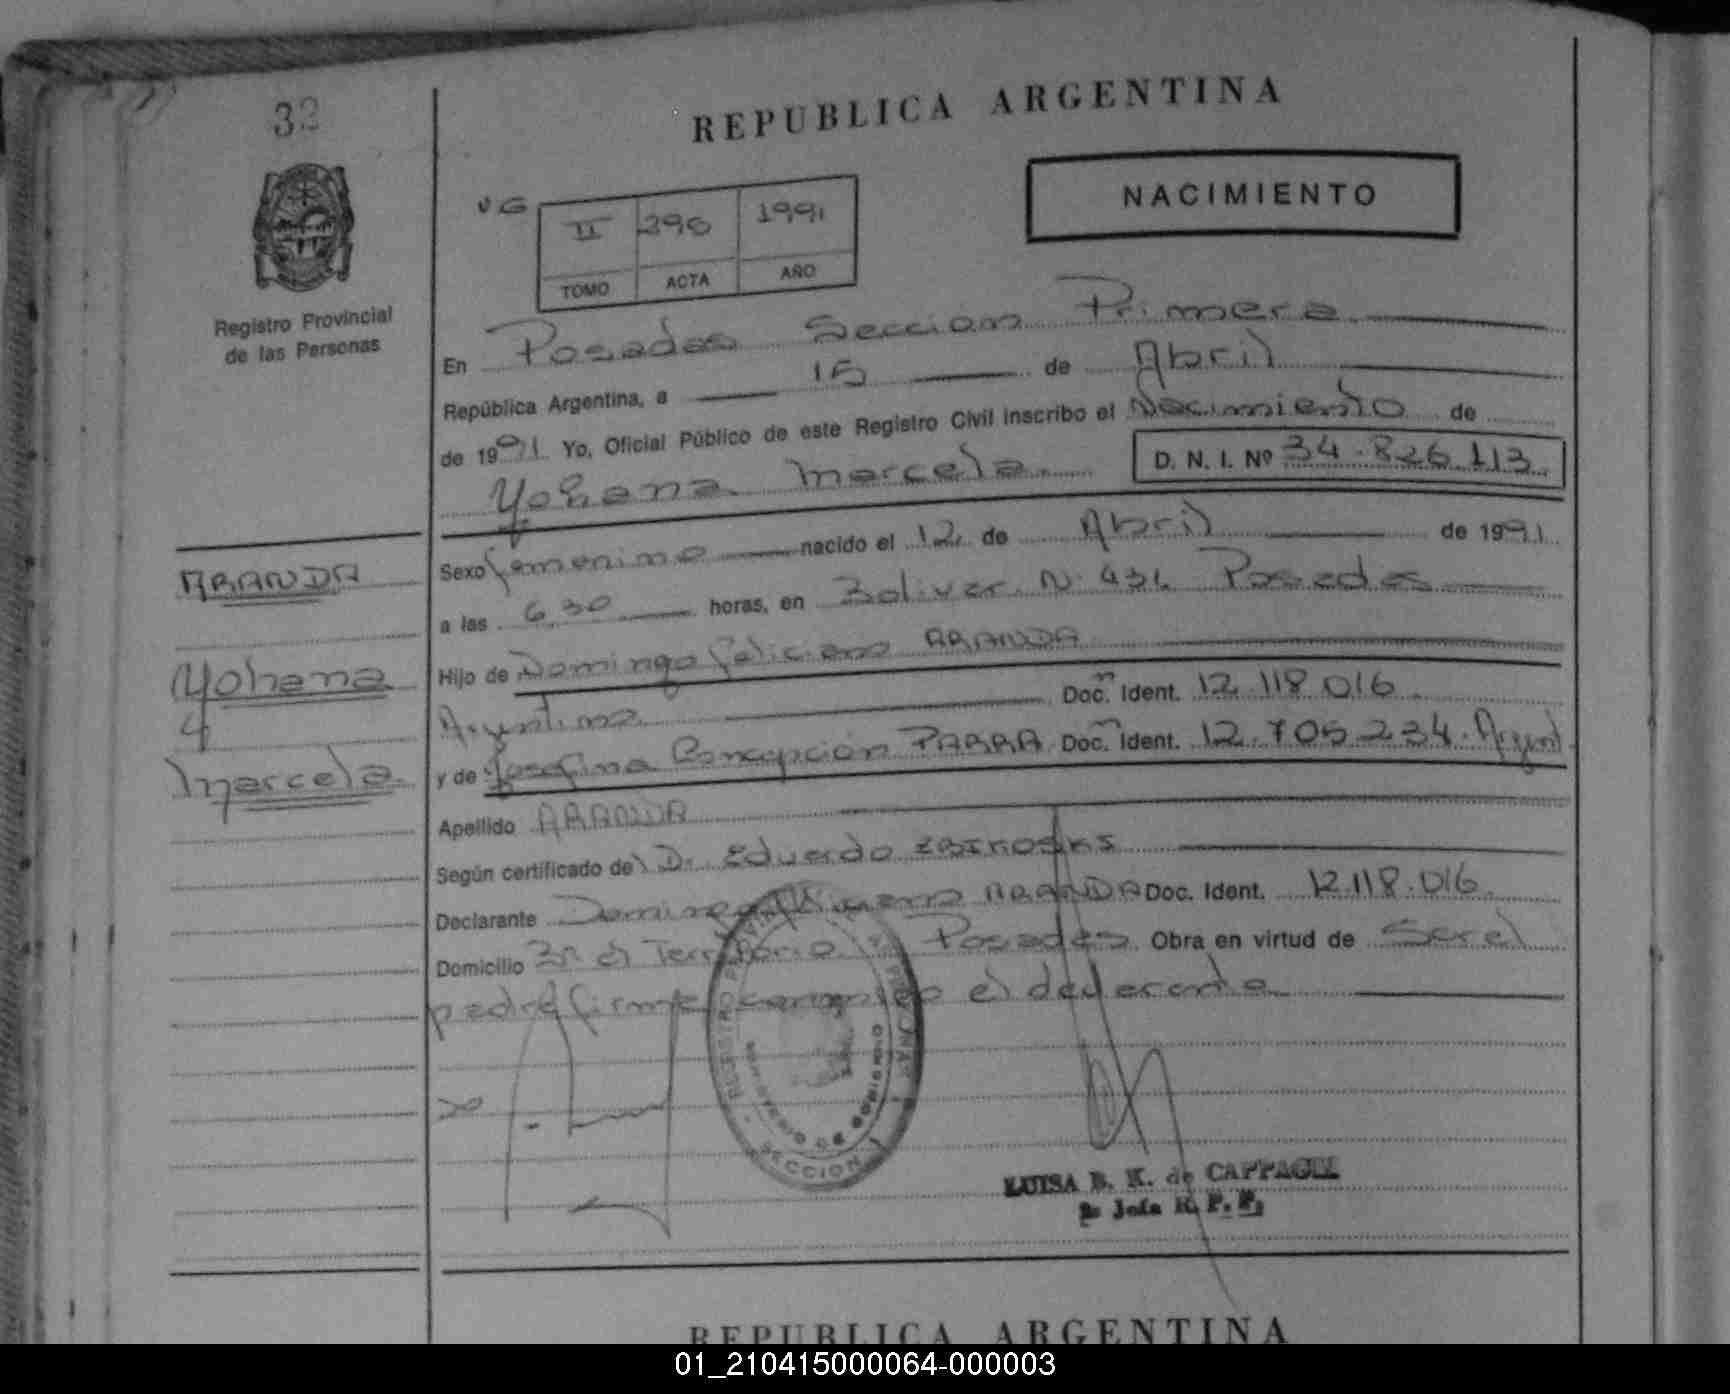 32
REPUBLICA ARGENTINA
NACIMIENTO
VG
II 296 1991
TOMO ACTA AÑO
Registro Provincial
de las Personas
En Posadas Seccion Primera
República Argentina, a 15 de Abril
de 1991. Yo, Oficial Público de este Registro Civil inscribo el Nacimiento de
Yohana Marcela D. N. I. Nº 34.826.113
Sexo femenino nacido el 12 de Abril de 1991
a las 6 30 horas, en Bolivar N. Posadas
Hijo de Domingo Feliciano ARANDA
Argentino Doc. Ident. 12.118.016
y de Josefina Concepción PARRA Doc. Ident. 12.705.234. Argent
Apellido ARANDA
Según certificado del D. Eduardo
Declarante Domingo Feliciano ARANDA Doc. Ident. 12.118.016.
Domicilio el Territorio Posadas Obra en virtud de Ser el
padre firma conmigo el declarante
ARANDA
Yohana
y
Marcela
MINISTERIO DE GOBIERNO
SECCION 1
LUISA B. K. de
REPUBLICA ARGENTINA
01_210415000064-000003